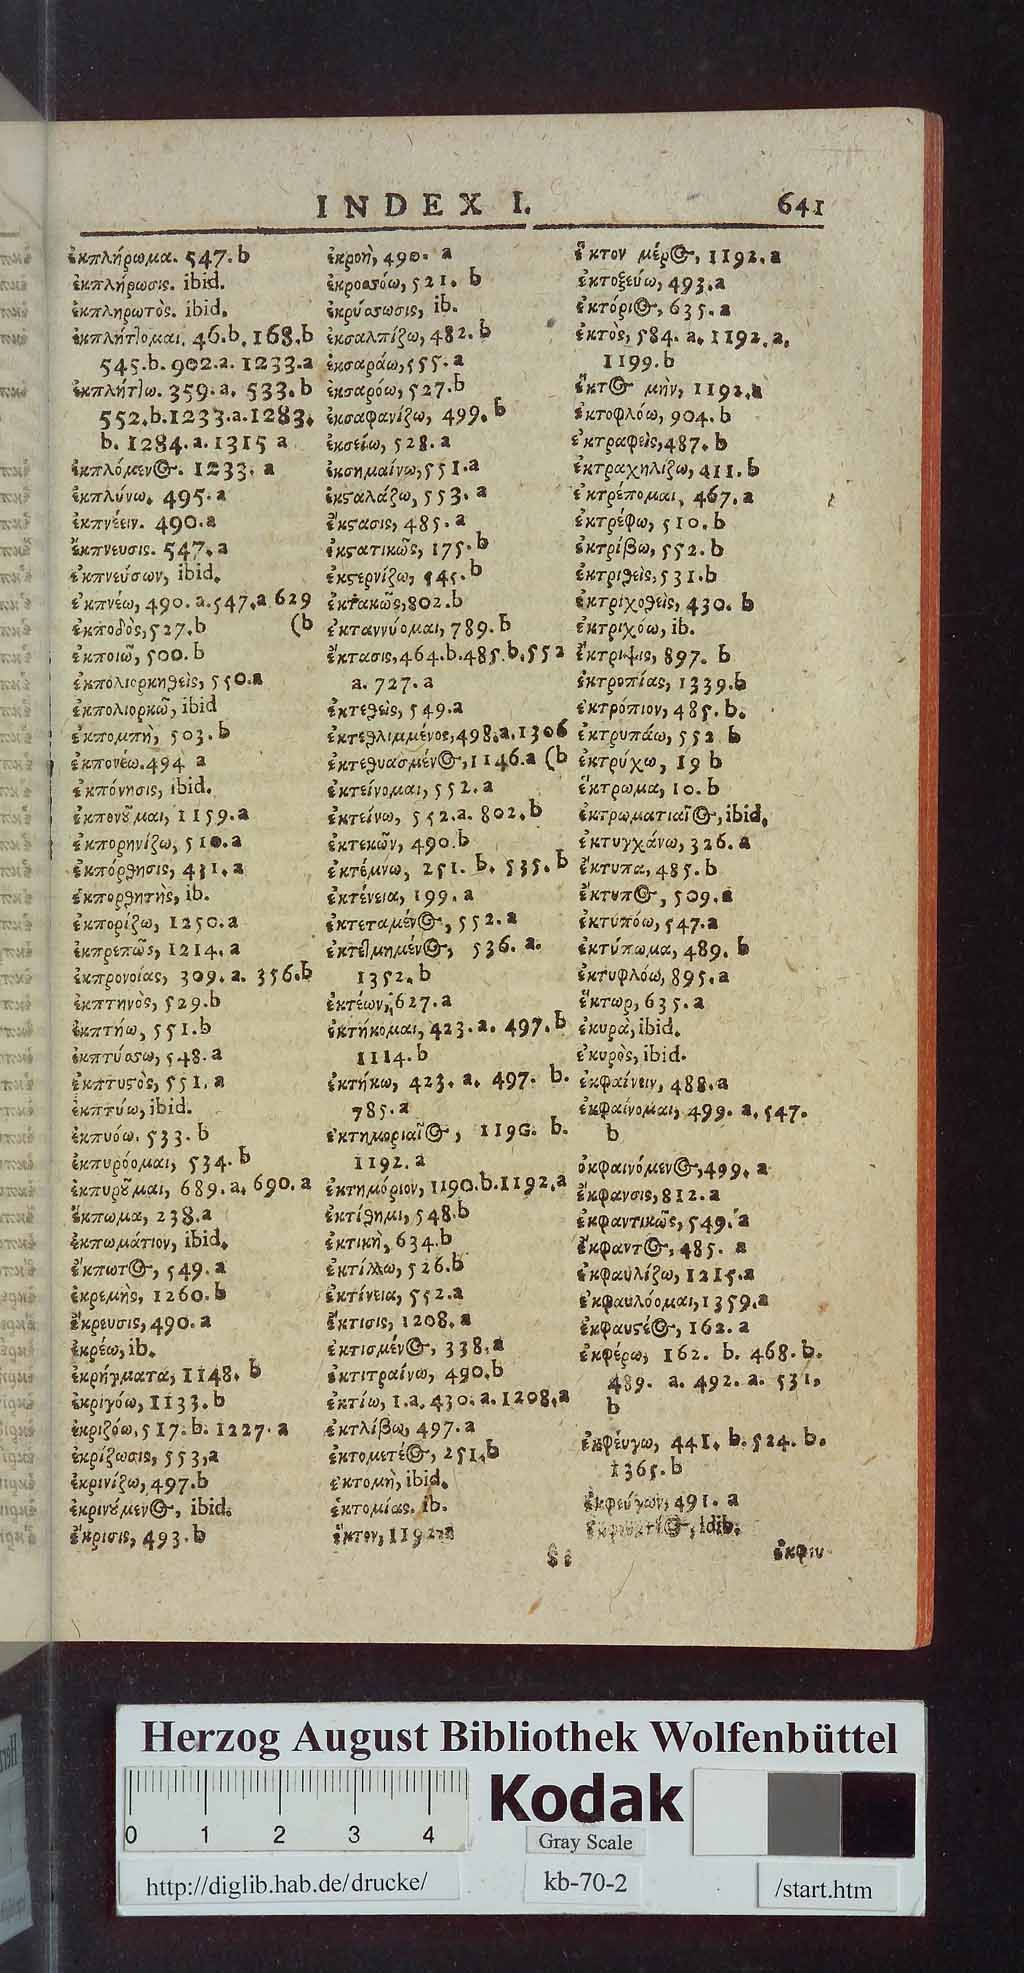 INDEX I. 641
ἐκπλήρωμα. 547. b
ἐκπλήρωσις. ibid.
ἐκπληρωτὸς. ibid.
ἐκπλήτ]ομαι. 46.b. 168.b
545.b. 902.a. 1233.a
ἐκπλήτ]ω. 359.a. 533.b
552.b.1233.a.1283.
b. 1284.a.1315 a
ἐκπλόμενος. 1233. a
ἐκπλύνω. 495. a
ἐκπνέειν. 490.a
ἔκπνευσις. 547. a
ἐκπνεύσων, ibid.
ἐκπνέω, 490. a.547.a 629
ἐκποδὸς, 527.b (b
ἐκποιῶ, 500. b
ἐκπολιορκηθεὶς, 550.a
ἐκπολιορκῶ, ibid
ἐκπομπὴ, 503. b
ἐκπονέω.494 a
ἐκπόνησις, ibid.
ἐκπονοῦμαι, 1159.a
ἐκπορηνίζω, 510.a
ἐκπόρθησις, 431. a
ἐκπορθητὴς, ib.
ἐκπορίζω, 1250.a
ἐκπρεπῶς, 1214. a
ἐκπρονοίας, 309. a. 356.b
ἐκπτηνὸς, 529.b
ἐκπτήω, 551.b
ἐκπτύασω, 548. a
ἐκπτυστὸς, 551. a
ἐκπτύω, ibid.
ἐκπυόω. 533. b
ἐκπυρόομαι, 534. b
ἐκπυροῦμαι, 689. a. 690. a
ἔκπωμα, 238.a
ἐκπωμάτιον, ibid.
ἔκπωτος, 549. a
ἐκρεμὴς, 1260. b
ἔκρευσις, 490. a
ἐκρέω, ib.
ἐκρήγματα, 1148. b
ἐκριγόω, 1133. b
ἐκριζόω, 517. b. 1227. a
ἐκρίζωσις, 553,a
ἐκρινίζω, 497.b
ἐκρινούμενος, ibid.
ἔκρισις, 493. b
ἐκροὴ, 490. a
ἐκροασόω, 521. b
ἐκρύασωσις, ib.
ἐκσαλπίζω, 482. b
ἐκσαράω, 555. a
ἐκσαρόω, 527.b
ἐκσαφανίζω, 499. b
ἐκσείω, 528. a
ἐκσημαίνω, 551.a
ἐκσταλάζω, 553. a
ἔκστασις, 485. a
ἐκστατικῶς, 175. b
ἐκστερνίζω, 545. b
ἐκτακῶς, 802.b
ἐκταννύομαι, 789. b
ἔκτασις, 464.b.485.b.552
a. 727. a
ἐκτεθεὶς, 549.a
ἐκτεθλιμμένος, 498.a.1306
ἐκτεθυασμένος, 1146.a (b
ἐκτείνομαι, 552. a
ἐκτείνω, 552.a. 802.b
ἐκτεκῶν, 490.b
ἐκτέμνω, 251. b. 535. b
ἐκτένεια, 199. a
ἐκτεταμένος, 552. a
ἐκτε]μημένος, 536. a.
1352. b
ἐκτέων, 627. a
ἐκτήκομαι, 423. a. 497. b
1114. b
ἐκτήκω, 423. a. 497. b.
785. a
ἐκτημοριαῖος, 1190. b.
1192. a
ἐκτημόριον, 1190.b.1192.a
ἐκτίθημι, 548.b
ἐκτικὴ, 634.b
ἐκτίλλω, 526.b
ἐκτίνεια, 552.a
ἔκτισις, 1208. a
ἐκτισμένος, 338. a
ἐκτιτραίνω, 490.b
ἐκτίω, 1.a. 430. a. 1208.a
ἐκτλίβω, 497. a
ἐκτομετέος, 251. b
ἐκτομὴ, ibid.
ἐκτομίας. ib.
ἕκτον, 1192. a
ἕκτον μέρος, 1192. a
ἐκτοξεύω, 493.a
ἑκτόριος, 635. a
ἐκτὸς, 584. a. 1192. a.
1199. b
ἕκτος μὴν, 1192. a
ἐκτοφλόω, 904. b
ἐκτραφεὶς, 487. b
ἐκτραχηλίζω, 411. b
ἐκτρέπομαι, 467. a
ἐκτρέφω, 510. b
ἐκτρίβω, 552. b
ἐκτριθεὶς, 531.b
ἐκτριχοθεὶς, 430. b
ἐκτριχόω, ib.
ἔκτριψις, 897. b
ἐκτροπίας, 1339.b
ἐκτρόπιον, 485. b.
ἐκτρυπάω, 552 b
ἐκτρύχω, 19 b
ἔκτρωμα, 10. b
ἐκτρωματιαῖος, ibid.
ἐκτυγχάνω, 326. a
ἔκτυπα, 485. b
ἔκτυπος, 509. a
ἐκτυπόω, 547.a
ἐκτύπωμα, 489. b
ἐκτυφλόω, 895. a
ἕκτωρ, 635. a
ἑκυρά, ibid.
ἑκυρὸς, ibid.
ἐκφαίνειν, 488. a
ἐκφαίνομαι, 499. a. 547.
b
ὀκφαινόμενος, 499. a
ἔκφανσις, 812. a
ἐκφαντικῶς, 549. a
ἔκφαντος, 485. a
ἐκφαυλίζω, 1215.a
ἐκφαυλόομαι, 1359.a
ἐκφαυστέος, 162. a
ἐκφέρω, 162. b. 468. b.
489. a. 492. a. 531.
b
ἐκφεύγω, 441. b. 524. b.
1365. b
ἐκφεύγων, 491. a
Idib.
Ss ἐκφιυ
Herzog August Bibliothek Wolfenbüttel
0 1 2 3 4
Kodak
Gray Scale
http://diglib.hab.de/drucke/
kb-70-2
/start.htm